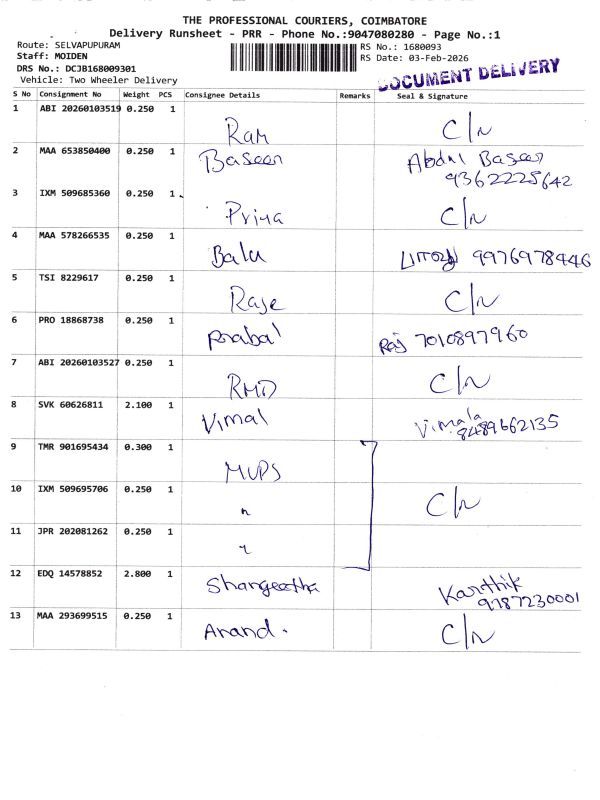 THE PROFESSIONAL COURIERS, COIMBATORE
Delivery Runsheet - PRR - Phone No.:9047080280 - Page No.:1
Route: SELVAPUPURAM
Staff: MOIDEN
DRS No.: DCJB168009301
Vehicle: Two Wheeler Delivery
RS No.: 1680093
RS Date: 03-Feb-2026
DOCUMENT DELIVERY
S No Consignment No Weight PCS Consignee Details Remarks Seal & Signature
1 ABI 20260103519 0.250 1 Ram C/n
2 MAA 653850400 0.250 1 Baseer Abdul Baseer
9362225642
3 IXM 509685360 0.250 1 Priya C/n
4 MAA 578266535 0.250 1 Balu 9976978446
5 TSI 8229617 0.250 1 Raje C/n
6 PRO 18868738 0.250 1 Prabal Raj 7010897960
7 ABI 20260103527 0.250 1 RMD C/n
8 SVK 60626811 2.100 1 Vimal Vimala
8489662135
9 TMR 901695434 0.300 1 MVPS
10 IXM 509695706 0.250 1 " C/n
11 JPR 202081262 0.250 1 "
12 EDQ 14578852 2.800 1 Shangeetha Karthik
9787230001
13 MAA 293699515 0.250 1 Anand. C/n